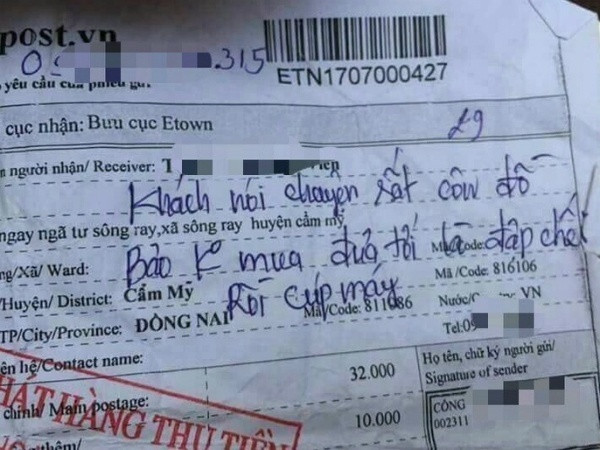 post.vn
0 315
yêu cầu của phiếu gửi
ETN1707000427
cục nhận: Bưu cục Etown
29
người nhận/ Receiver: T
Khách nói chuyện rất côn đồ
ngay ngã tư sông ray,xã sông ray huyện cẩm mỹ
Bảo K mua đưa tới là đập chết
ng/Xã/ Ward: Mã/Code:
Mã /Code: 816106
Rồi cúp máy
/Huyện/ District: Cẩm Mỹ
Nước/ VN
TP/City/Province: ĐỒNG NAI Mã/Code: 811086
Tel:09
ên hệ/Contact name:
32.000
Họ tên, chữ ký người gửi/
Signature of sender
PHÁT HÀNG THU TIỀN
chính/ Main postage:
10.000
CÔNG
002311
thêm/